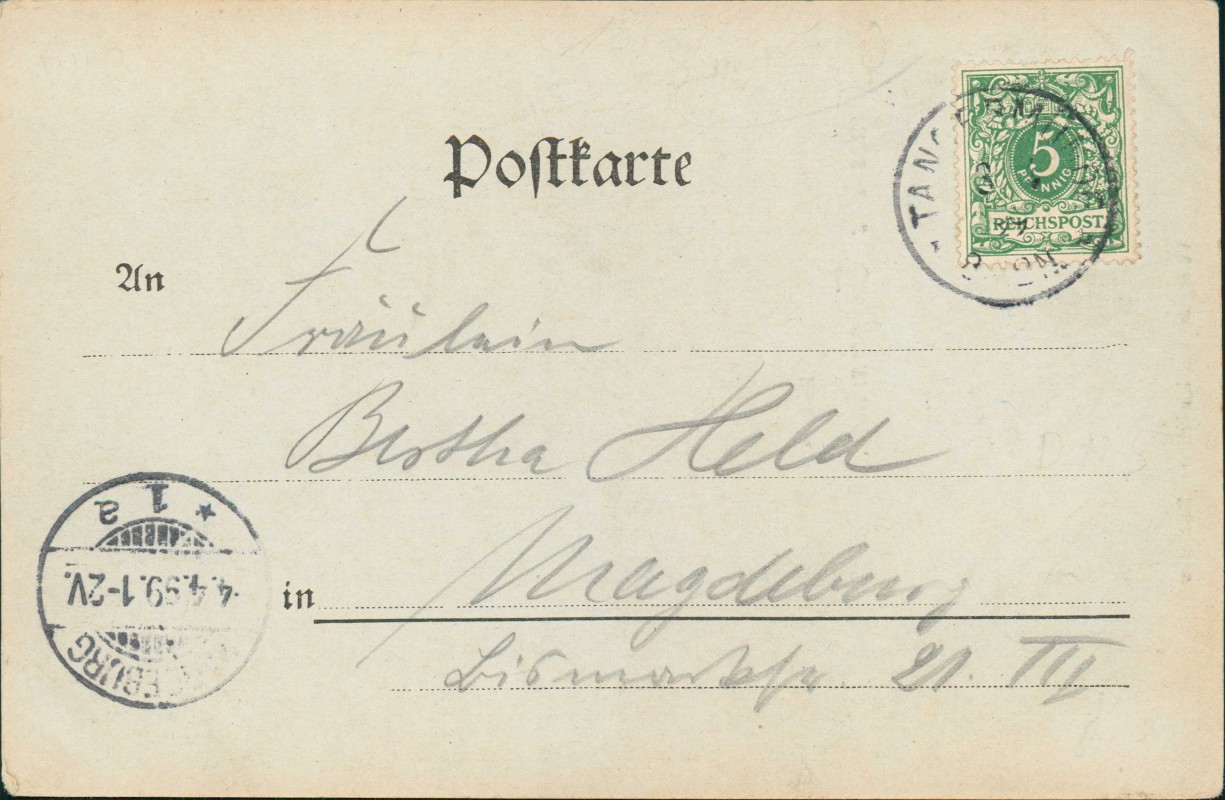 Postkarte
5
PFENNIG
REICHSPOST
An
Fräulein
Bertha Held
in Magdeburg
Bismarckstr. 21. III
1 a
4.4.99. 1-2V.